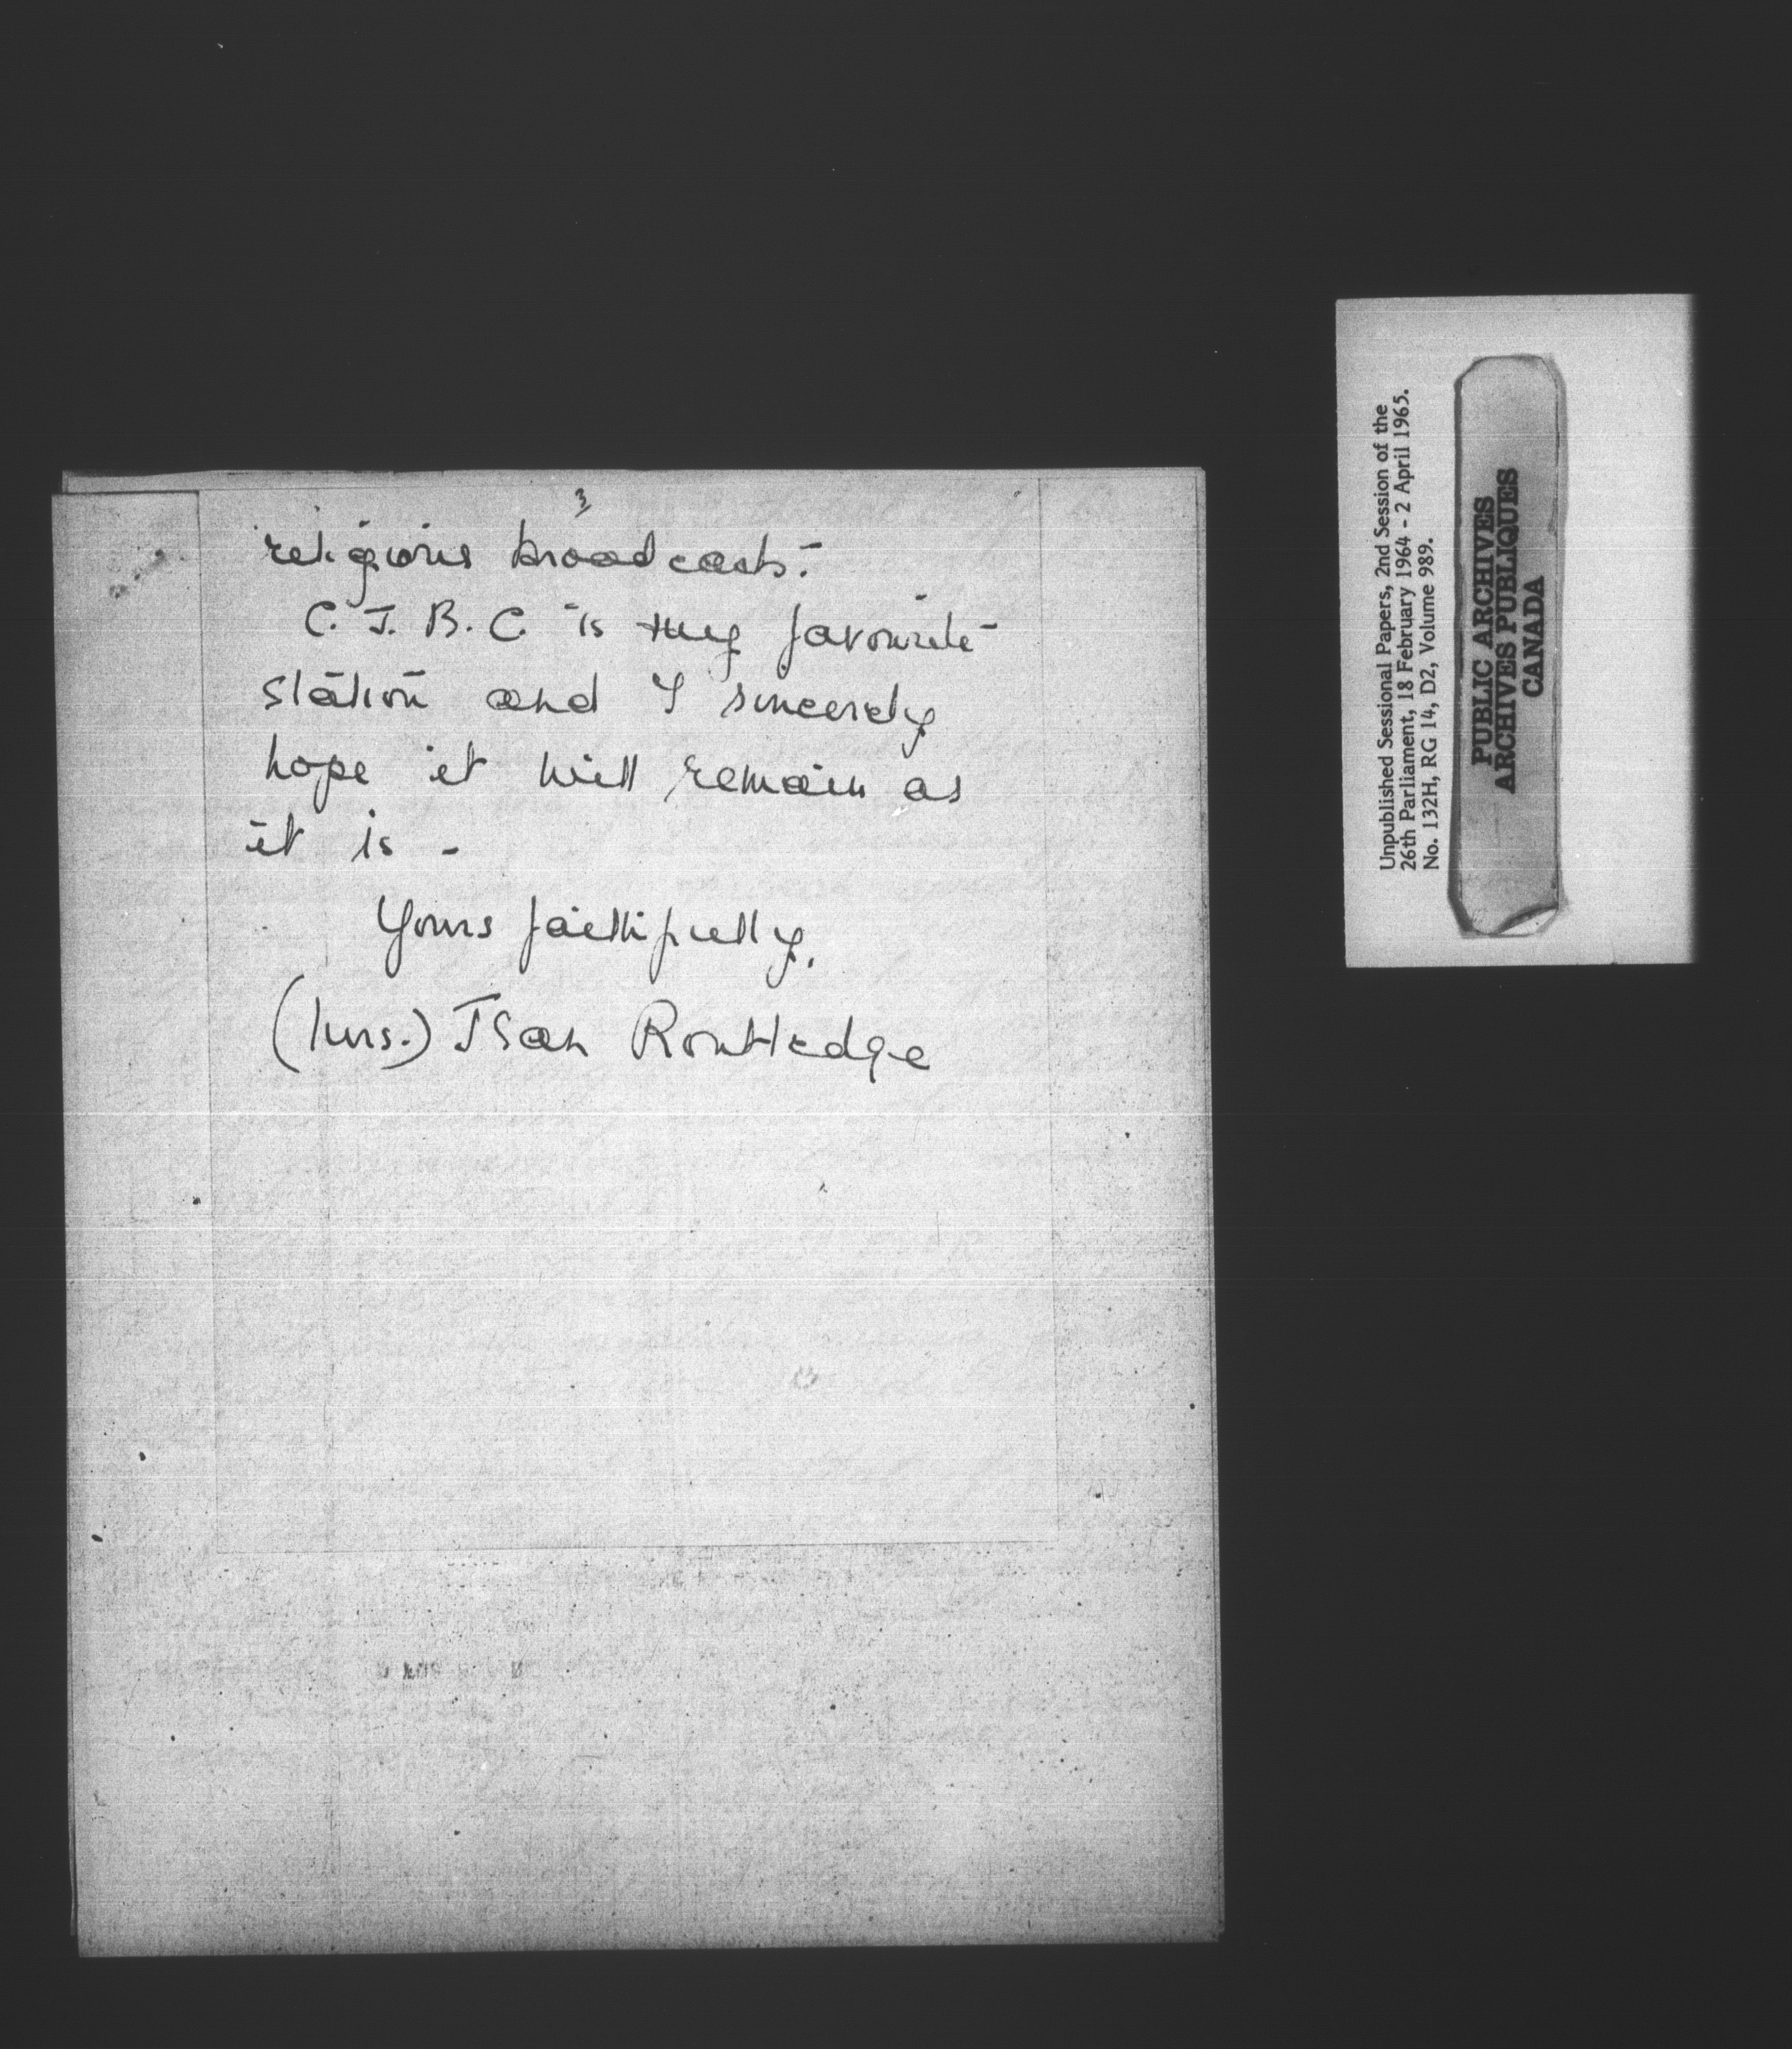 3
religious broadcasts.
C. J. B. C. is my favourite
station and I sincerely
hope it will remain as
it is -
Yours faithfully,
(Mrs.) Jean Routledge
Unpublished Sessional Papers, 2nd Session of the
26th Parliament, 18 February 1964 - 2 April 1965.
No. 132H, RG 14, D2, Volume 989.
PUBLIC ARCHIVES
ARCHIVES PUBLIQUES
CANADA